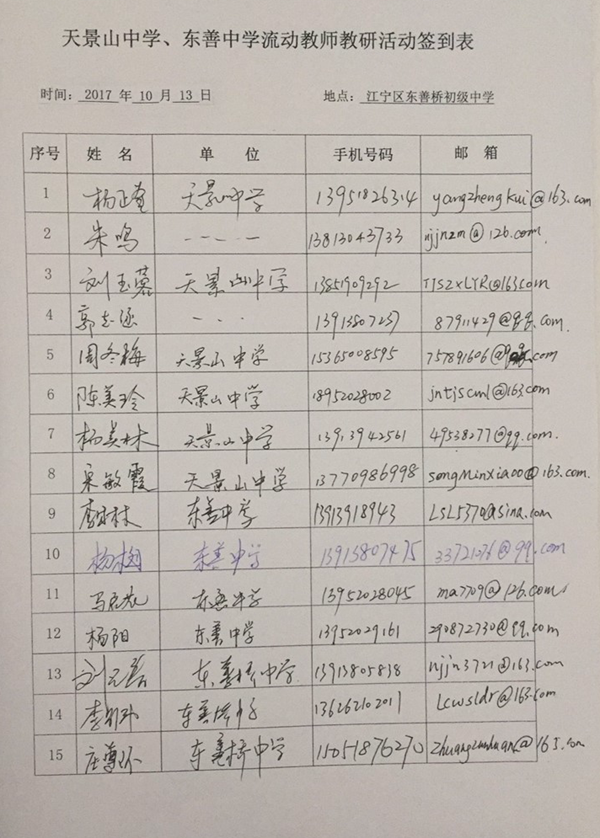 天景山中学、东善中学流动教师教研活动签到表
时间： 2017 年 10 月 13 日 地点： 江宁区东善桥初级中学
序号 姓 名 单 位 手机号码 邮 箱
1 杨正奎 天景山中学 13951826314 yangzhengkui@163.com
2 朱鸣 ---- 13813043733 njjnzm@126.com
3 刘玉蓉 天景山中学 13851909292 TJSZXLYR@163.com
4 郭志强 --- 87911429@qq.com
5 周冬梅 天景山中学 15365008595 757891606@qq.com
6 陈美玲 天景山中学 18952028002 jntjscml@163.com
7 杨美林 天景山中学 13913942561 49538277@qq.com
8 宋敏霞 天景山中学 13770986998 songMinxia00@163.com
9 东善中学 13913918943 LSL5370@sina.com
10 杨栩 东善中学 13913807475 33721076@qq.com
11 东善中学 13952028045 ma7709@126.com
12 杨阳 东善中学 13952029161 290872730@qq.com
13 东善桥中学 13913805838 njjn3721@163.com
14 13626210201 Lcwsldr@163.com
15 东善桥中学 15051876270